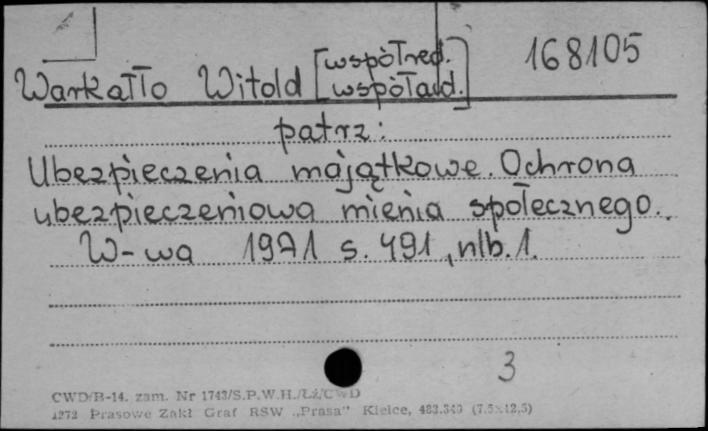 168105
Warkałło Witold [współred. współaud.]
patrz:
Ubezpieczenia majątkowe. Ochrona
ubezpieczeniowa mienia społecznego.
W-wa 1971 s. 491, nlb. 1.
3
CWD/B-14. zam. Nr 1743/S.P.W.H./Łż/CWD
1272 Prasowe Zakł Graf RSW „Prasa” Kielce, 483.340 (7.5x12,5)